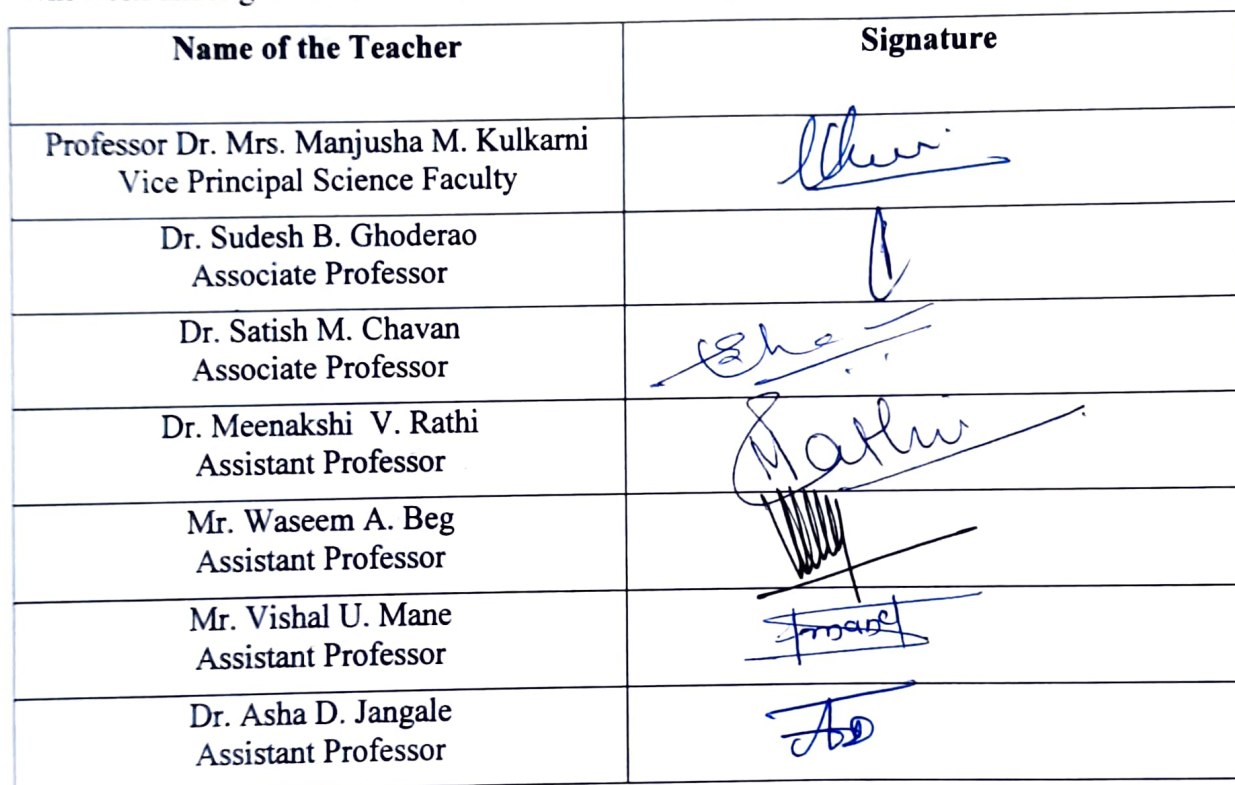 Name of the Teacher
Signature
Professor Dr. Mrs. Manjusha M. Kulkarni
Vice Principal Science Faculty
Dr. Sudesh B. Ghoderao
Associate Professor
Dr. Satish M. Chavan
Associate Professor
Dr. Meenakshi V. Rathi
Assistant Professor
Rathi
Mr. Waseem A. Beg
Assistant Professor
Mr. Vishal U. Mane
Assistant Professor
mane
Dr. Asha D. Jangale
Assistant Professor